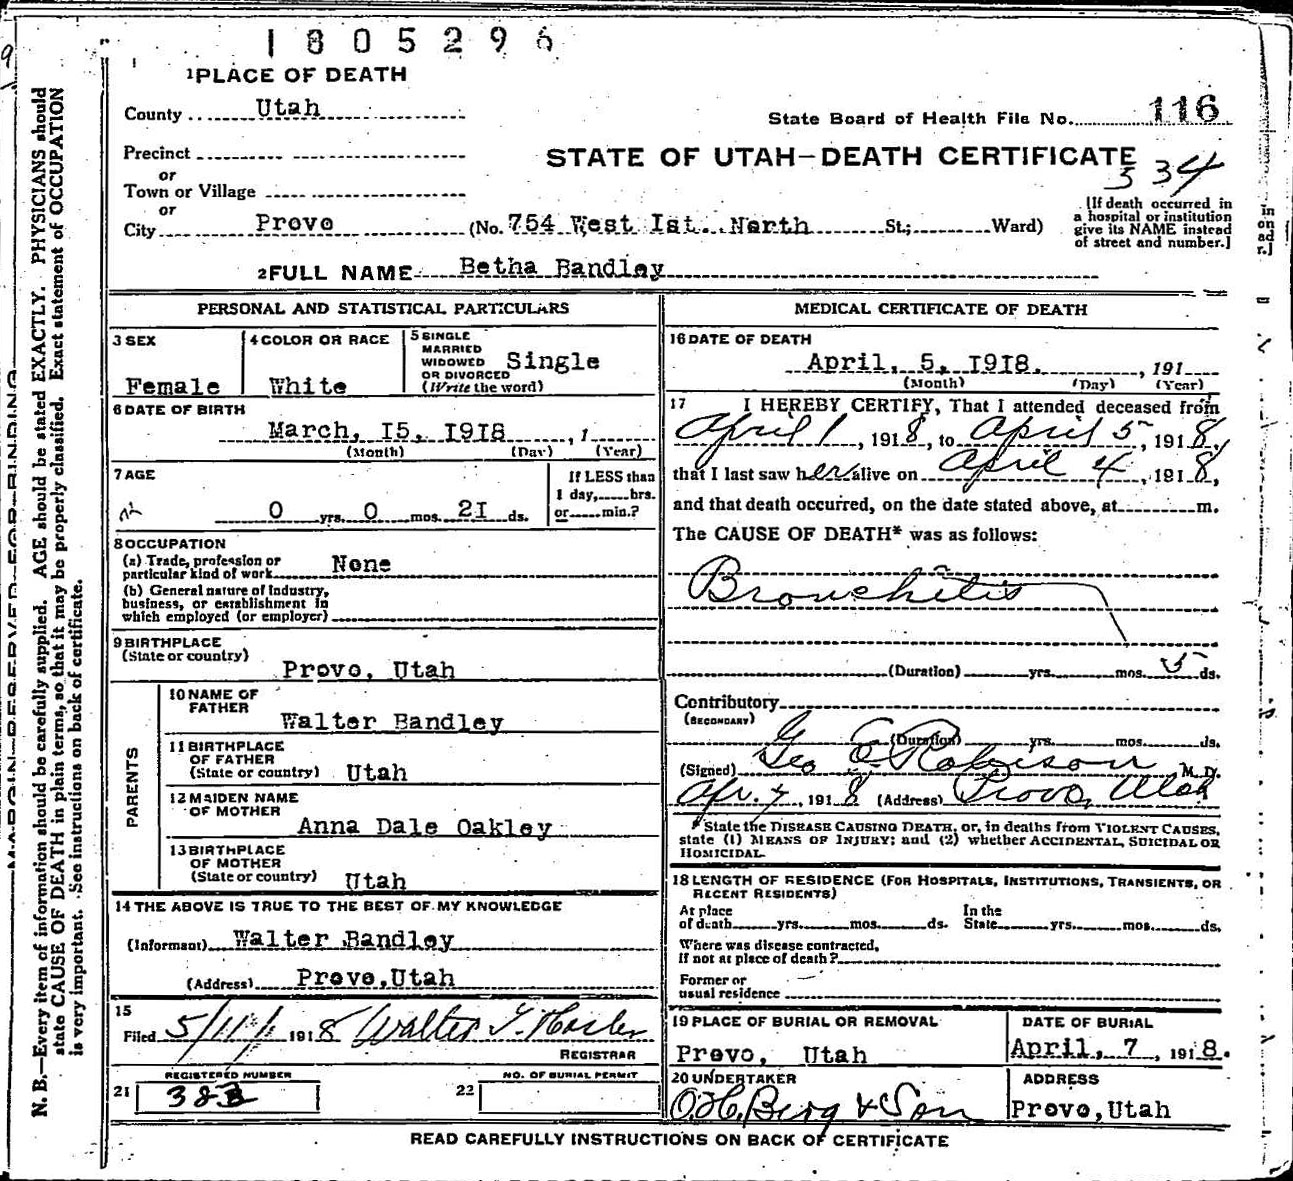 1805296
1 PLACE OF DEATH
County Utah
State Board of Health File No. 116
Precinct
or
STATE OF UTAH—DEATH CERTIFICATE
534
Town or Village
or
City Provo (No. 754 West Ist. North St.; Ward)
[If death occurred in
a hospital or institution
give its NAME instead
of street and number.]
2 FULL NAME Betha Bandley
PERSONAL AND STATISTICAL PARTICULARS
3 SEX
Female
4 COLOR OR RACE
White
5 SINGLE
MARRIED
WIDOWED
OR DIVORCED
(Write the word)
Single
6 DATE OF BIRTH
March, I5, I9I8 , 1
(Month) (Day) (Year)
7 AGE
0 yrs. 0 mos. 2I ds.
If LESS than
1 day, hrs.
or min.?
8 OCCUPATION
(a) Trade, profession or
particular kind of work None
(b) General nature of Industry,
business, or establishment in
which employed (or employer)
9 BIRTHPLACE
(State or country)
Provo, Utah
PARENTS
10 NAME OF
FATHER
Walter Bandley
11 BIRTHPLACE
OF FATHER
(State or country) Utah
12 MAIDEN NAME
OF MOTHER
Anna Dale Oakley
13 BIRTHPLACE
OF MOTHER
(State or country) Utah
14 THE ABOVE IS TRUE TO THE BEST OF MY KNOWLEDGE
(Informant) Walter Bandley
(Address) Provo,Utah
15
Filed 5/11/ 1918 Walter T. Hasler
REGISTRAR
REGISTERED NUMBER
21 383
NO. OF BURIAL PERMIT
22
MEDICAL CERTIFICATE OF DEATH
16 DATE OF DEATH
April, 5, I9I8. , 191
(Month) (Day) (Year)
17 I HEREBY CERTIFY, That I attended deceased from
April 1 , 1918, to April 5 , 1918,
that I last saw her alive on April 4 , 1918,
and that death occurred, on the date stated above, at m.
The CAUSE OF DEATH* was as follows:
Bronchitis
(Duration) yrs. mos. 5 ds.
Contributory
(SECONDARY)
(Duration) yrs. mos. ds.
(Signed) Geo E Robison M. D.
Apr. 7, 1918 (Address) Provo, Utah
* State the DISEASE CAUSING DEATH, or, in deaths from VIOLENT CAUSES,
state (1) MEANS OF INJURY; and (2) whether ACCIDENTAL, SUICIDAL OR
HOMICIDAL.
18 LENGTH OF RESIDENCE (FOR HOSPITALS, INSTITUTIONS, TRANSIENTS, OR
RECENT RESIDENTS)
At place
of death yrs. mos. ds.
In the
State yrs. mos. ds.
Where was disease contracted,
if not at place of death?
Former or
usual residence
19 PLACE OF BURIAL OR REMOVAL
Provo, Utah
DATE OF BURIAL
April, 7 , 1918.
20 UNDERTAKER
O.H. Berg & Son
ADDRESS
Provo,Utah
READ CAREFULLY INSTRUCTIONS ON BACK OF CERTIFICATE
N. B.—Every item of information should be carefully supplied. AGE should be stated EXACTLY. PHYSICIANS should
state CAUSE OF DEATH in plain terms, so that it may be properly classified. Exact statement of OCCUPATION
is very important. See instructions on back of certificate.